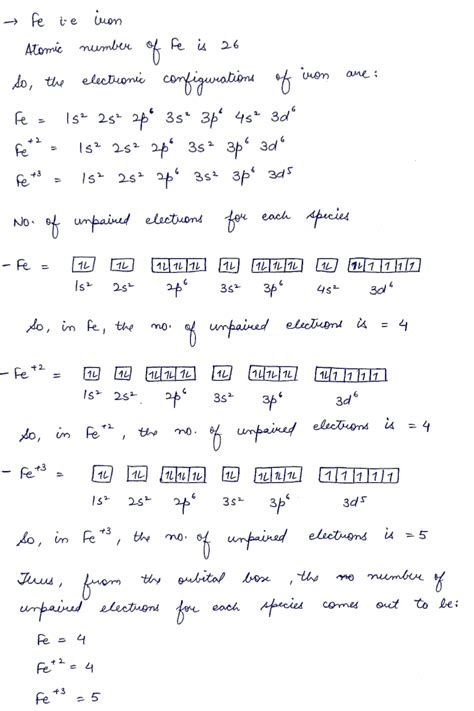 → Fe i.e iron
Atomic number of Fe is 26
So, the electronic configurations of iron are:
Fe = 1s² 2s² 2p⁶ 3s² 3p⁶ 4s² 3d⁶
Fe⁺² = 1s² 2s² 2p⁶ 3s² 3p⁶ 3d⁶
Fe⁺³ = 1s² 2s² 2p⁶ 3s² 3p⁶ 3d⁵
No. of unpaired electrons for each species
- Fe = [1L] [1L] [1L|1L|1L] [1L] [1L|1L|1L] [1L] [1L|1|1|1|1]
1s² 2s² 2p⁶ 3s² 3p⁶ 4s² 3d⁶
So, in Fe, the no. of unpaired electrons is = 4
- Fe⁺² = [1L] [1L] [1L|1L|1L] [1L] [1L|1L|1L] [1L|1|1|1|1]
1s² 2s² 2p⁶ 3s² 3p⁶ 3d⁶
So, in Fe⁺², the no. of unpaired electrons is = 4
- Fe⁺³ = [1L] [1L] [1L|1L|1L] [1L] [1L|1L|1L] [1|1|1|1|1]
1s² 2s² 2p⁶ 3s² 3p⁶ 3d⁵
So, in Fe⁺³, the no. of unpaired electrons is = 5
Thus, from the orbital box, the no number of
unpaired electrons for each species comes out to be:
Fe = 4
Fe⁺² = 4
Fe⁺³ = 5